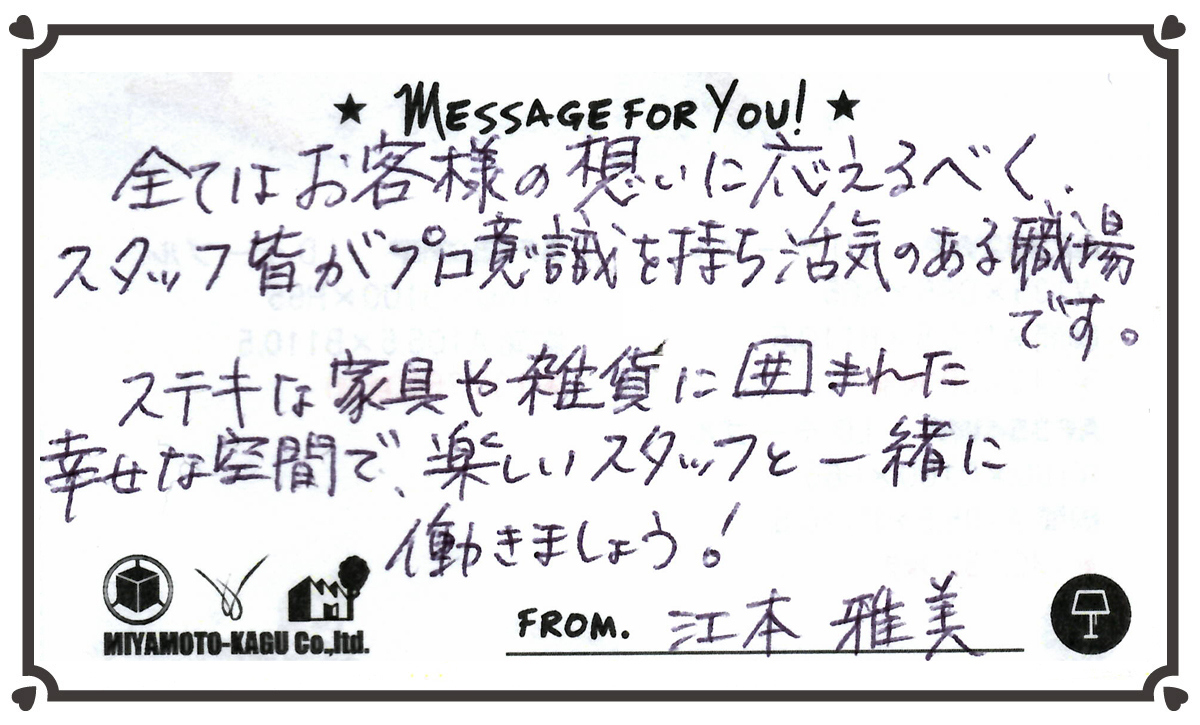 ★ MESSAGE FOR YOU! ★
全てはお客様の想いに応えるべく、
スタッフ皆がプロ意識を持ち活気のある職場
です。
ステキな家具や雑貨に囲まれた
幸せな空間で、楽しいスタッフと一緒に
働きましょう!
MIYAMOTO-KAGU Co.,ltd.
FROM. 江本 雅美